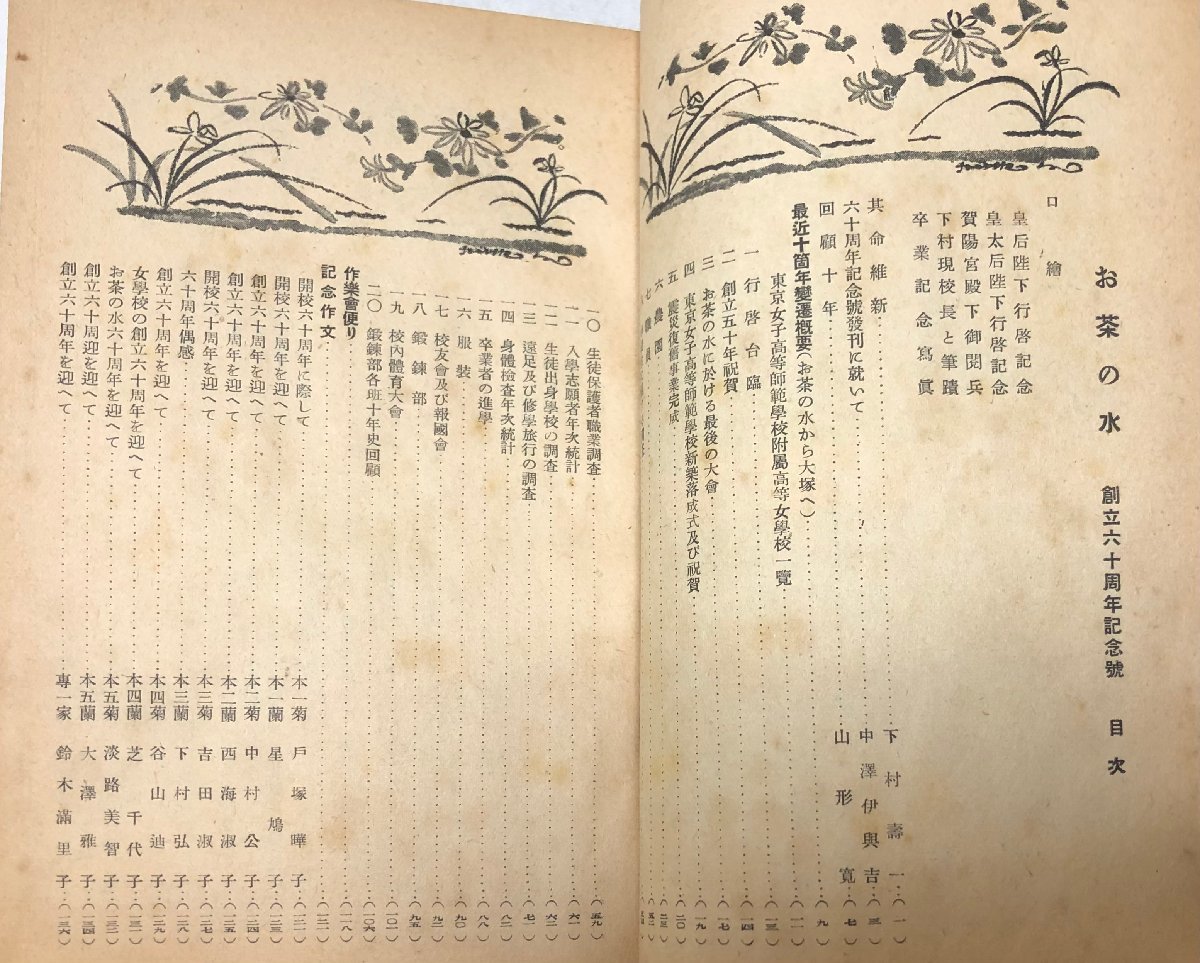 お茶の水 創立六十周年記念號 目次
口繪
皇后陛下行啓記念
皇太后陛下行啓記念
賀陽宮殿下御閲兵
下村現校長と筆蹟
卒業記念寫眞
其命維新 下村壽一 (一)
六十周年記念號發刊に就いて 中澤伊與吉 (三)
回顧十年 山形寛 (七)
最近十箇年變遷概要(お茶の水から大塚へ) (九)
東京女子高等師範學校附屬高等女學校一覽
一 行啓台臨
二 創立五十年祝賀
三 お茶の水に於ける最後の大會
四 東京女子高等師範學校新築落成式及び祝賀
五 震災復舊事業完成
六 農園
七 職員
一〇 生徒保護者職業調査 (五九)
一一 入學志願者年次統計 (六一)
一二 生徒出身學校の調査 (六二)
一三 遠足及び修學旅行の調査 (七一)
一四 身體檢査年次統計 (八二)
一五 卒業者の進學 (八八)
一六 服裝 (九〇)
一七 校友會及び報國會 (九二)
一八 鍛鍊部 (九五)
一九 校内體育大會 (一〇一)
二〇 鍛鍊部各班十年史回顧 (一〇六)
作樂會便り (一一八)
記念作文 (一二一)
開校六十周年に際して 本一菊 戸塚曄子 (一二二)
開校六十周年を迎へて 本一蘭 星鳩子 (一二三)
創立六十周年を迎へて 本二菊 中村公子 (一二四)
創立六十周年を迎へて 本二蘭 西海淑子 (一二五)
開校六十周年を迎へて 本三菊 吉田淑子 (一二七)
六十周年偶感 本三蘭 下村弘子 (一二八)
創立六十周年を迎へて 本四菊 谷山迪子 (一二九)
女學校の創立六十周年を迎へて 本四蘭 芝千代子 (一三一)
お茶の水六十周年を迎へて 本五菊 淡路美智子 (一三二)
創立六十周年を迎へて 本五蘭 大澤雅子 (一三四)
創立六十周年を迎へて 專一家 鈴木滿里子 (一三六)